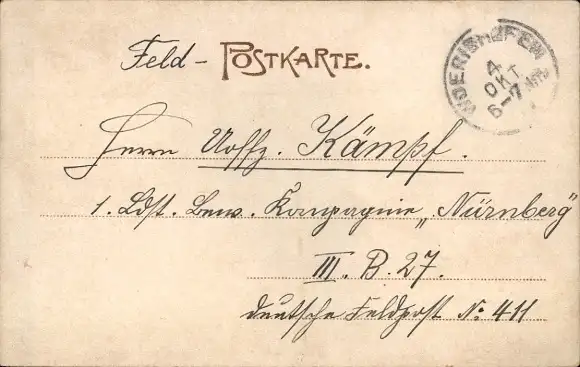 Feld - POSTKARTE.
WÖRISHOFEN
4
OKT
6-7 Nm
Herrn Uoffz. Kämpf.
1. Ldst. Bew. Kompagnie „Nürnberg"
III. B. 27.
deutsche Feldpost No. 411